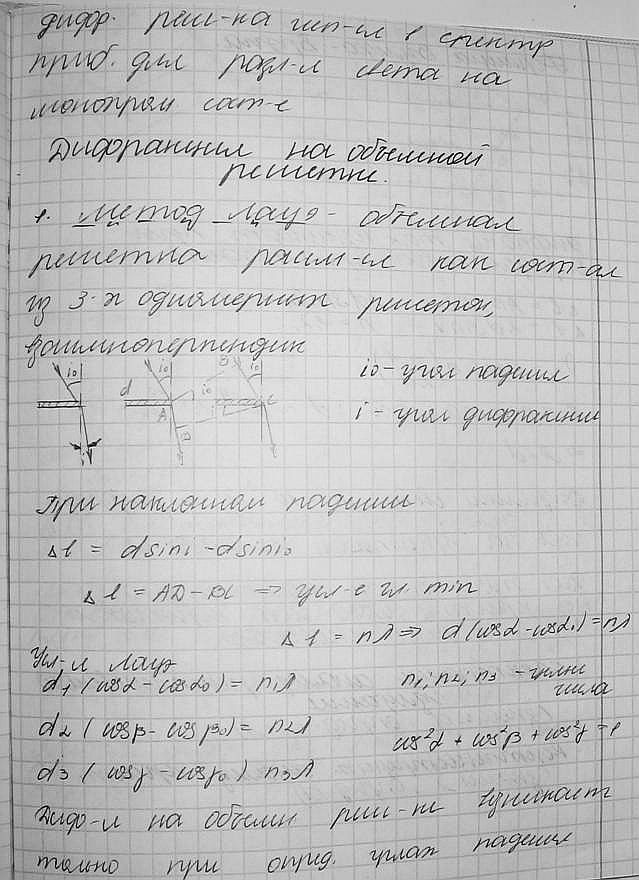 дифр. реш-ка исп-ся в спектр
приб. для разл-я света на
монохром сост-е
Дифракция на объемной
решетке.
1. Метод Лауэ - объемная
решетка рассм-ся как сост-ая
из 3-х одномерных решеток,
взаимноперпендик
i₀ i₀ B i₀
d i₀ C
A D
i₀ - угол падения
i - угол дифракции
При наклонном падении
Δl = d sin i - d sin i₀
Δl = AD - BC => усл-е гл. min
Δl = nλ => d(cosα - cosα₀) = nλ
Усл-я Лауэ
d₁(cosα - cosα₀) = n₁λ
n₁; n₂; n₃ - целые
числа
d₂(cosβ - cosβ₀) = n₂λ
cos²α + cos²β + cos²γ = 1
d₃(cosγ - cosγ₀) n₃λ
Дифр-я на объемн реш-ке возникает
только при опред. углах падения